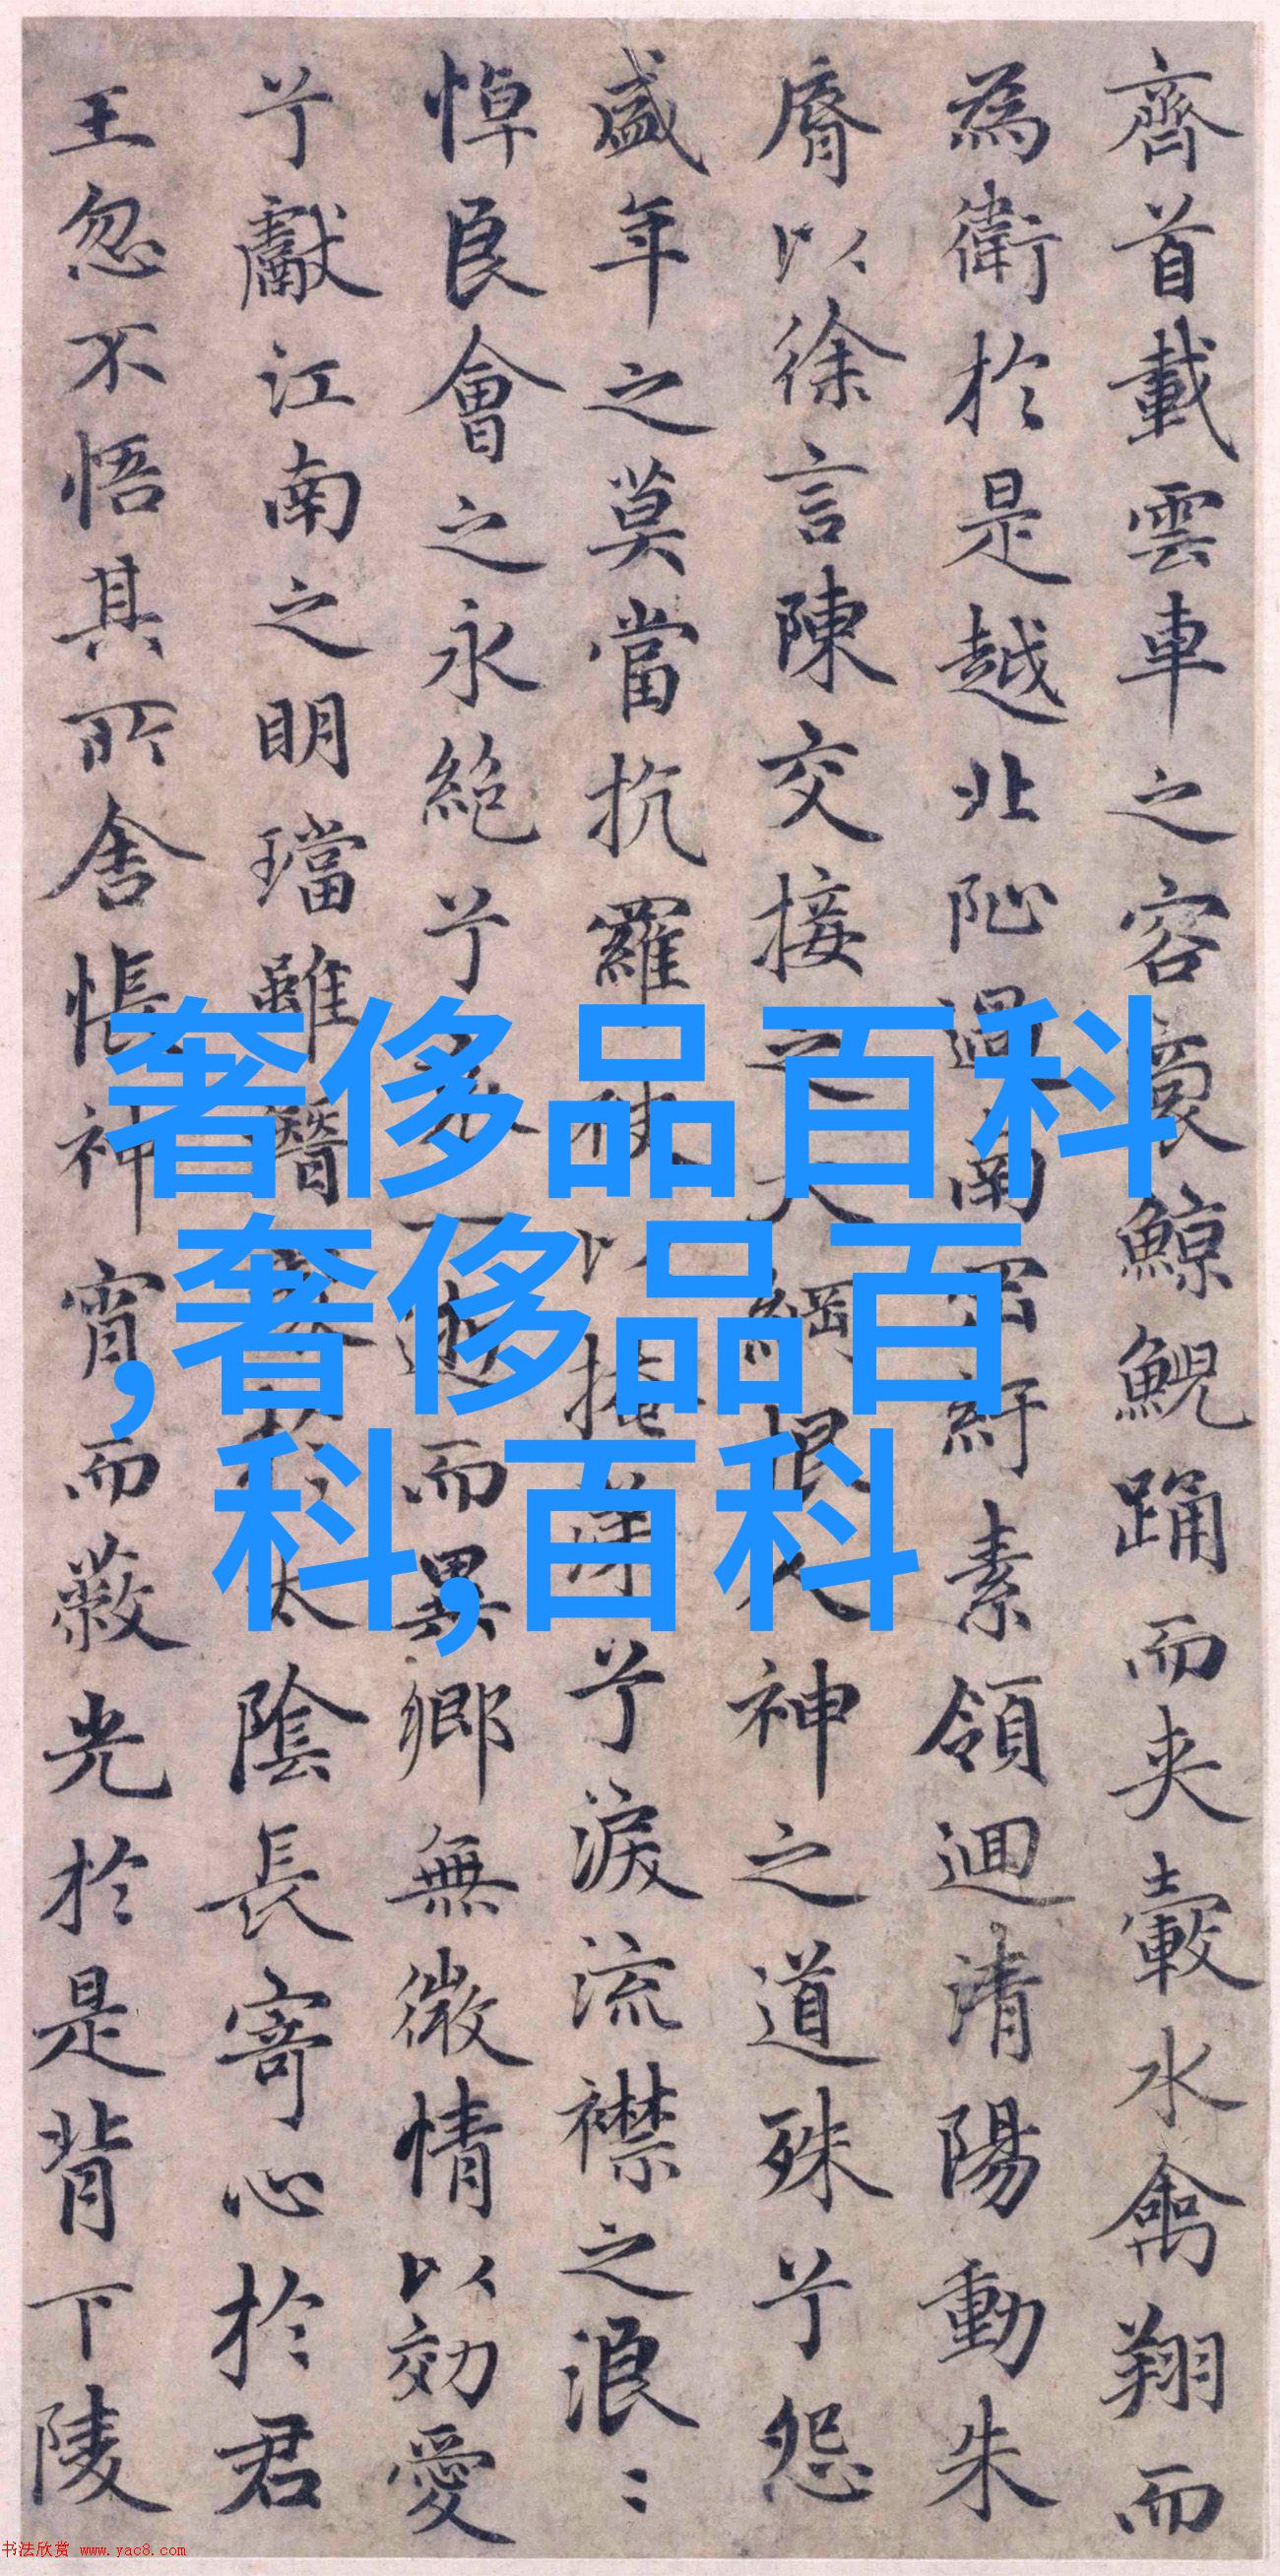 齊首載雲車之容裔鯨鯢踊而夾轂水禽翔而
為衛於是越北沚過南岡紆素領迴清陽動朱
脣以徐言陳交接之大綱恨人神之道殊兮怨
盛年之莫當抗羅袂以掩涕兮淚流襟之浪〻
悼良會之永絶兮哀一逝而異鄉無微情以効愛
兮獻江南之明璫雖潛處於太陰長寄心於君
王忽不悟其所舍悵神宵而蔽光於是背下陵
奢侈品百科
,奢侈品百
科,百科
书法欣赏 www.yac8.com